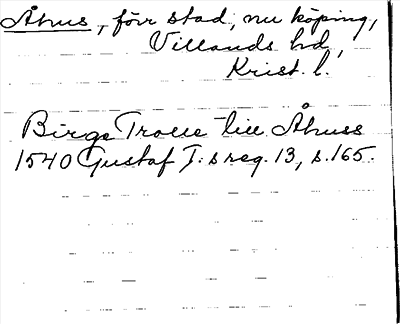 Åhus, förr stad, nu köping,
Villands hd,
Krist. l.
Birge Trolle till Åhuss
1540 Gustaf I:s reg. 13, s. 165.